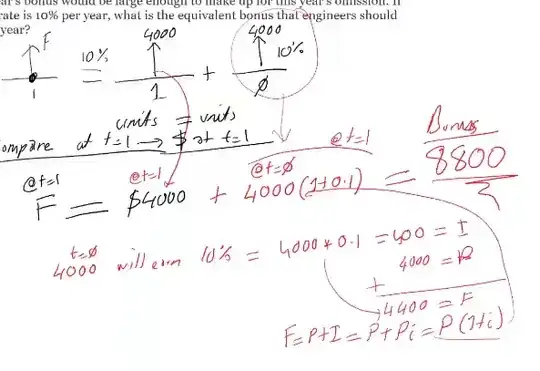 ar's bonus would be large enough to make up for this year's omission. If
rate is 10% per year, what is the equivalent bonus that engineers should
year?
F 10% = 4000 + 4000 10%
1 1 0
units = units
ompare at t=1 → $ at t=1
@t=1 @t=1 @t=0 @t=1 Bonus
F = $4000 + 4000(1+0.1) = 8800
t=0
4000 will earn 10% = 4000 * 0.1 = 400 = I
4000 = P
+
4400 = F
F=P+I = P+Pi = P(1+i)